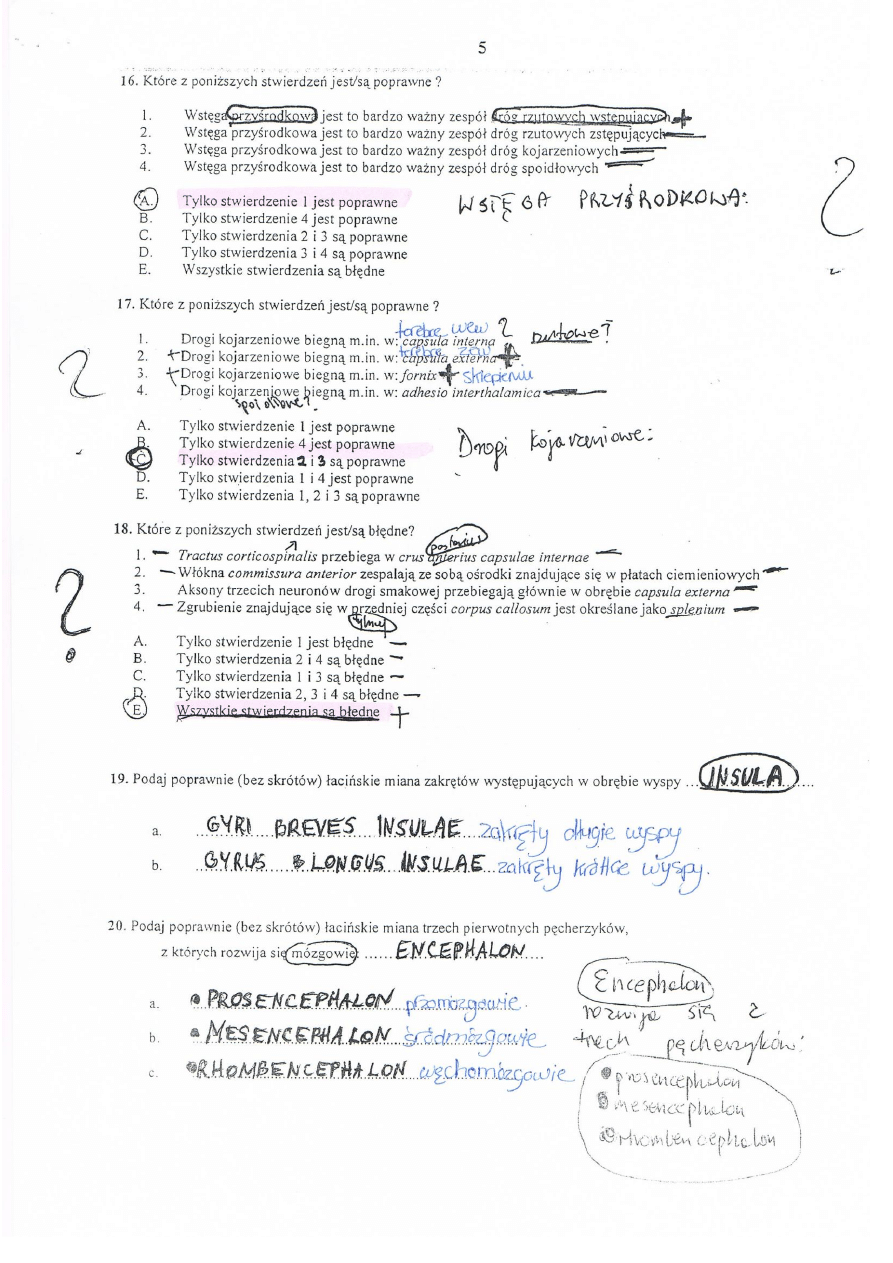 5
16. Które z poniższych stwierdzeń jest/są poprawne ?
1. Wstęga przyśrodkowa jest to bardzo ważny zespół dróg rzutowych wstępujących +
2. Wstęga przyśrodkowa jest to bardzo ważny zespół dróg rzutowych zstępujących —
3. Wstęga przyśrodkowa jest to bardzo ważny zespół dróg kojarzeniowych —
4. Wstęga przyśrodkowa jest to bardzo ważny zespół dróg spoidłowych —
A. Tylko stwierdzenie 1 jest poprawne
WSTĘGA PRZYŚRODKOWA:
?
B. Tylko stwierdzenie 4 jest poprawne
C. Tylko stwierdzenia 2 i 3 są poprawne
D. Tylko stwierdzenia 3 i 4 są poprawne
E. Wszystkie stwierdzenia są błędne
17. Które z poniższych stwierdzeń jest/są poprawne ?
torebce wew ?
1. Drogi kojarzeniowe biegną m.in. w: capsula interna
rzutowe?
torebce zew
2. + Drogi kojarzeniowe biegną m.in. w: capsula externa +
3. + Drogi kojarzeniowe biegną m.in. w: fornix + sklepieniu
4. Drogi kojarzeniowe biegną m.in. w: adhesio interthalamica —
spoidłowe?
?
A. Tylko stwierdzenie 1 jest poprawne
B. Tylko stwierdzenie 4 jest poprawne
Drogi kojarzeniowe:
C. Tylko stwierdzenia 2 i 3 są poprawne
D. Tylko stwierdzenia 1 i 4 jest poprawne
E. Tylko stwierdzenia 1, 2 i 3 są poprawne
18. Które z poniższych stwierdzeń jest/są błędne?
posterius
1. — Tractus corticospinalis przebiega w crus anterius capsulae internae —
2. — Włókna commissura anterior zespalają ze sobą ośrodki znajdujące się w płatach ciemieniowych —
3. Aksony trzecich neuronów drogi smakowej przebiegają głównie w obrębie capsula externa —
4. — Zgrubienie znajdujące się w przedniej części corpus callosum jest określane jako splenium —
tylnej
?
A. Tylko stwierdzenie 1 jest błędne —
B. Tylko stwierdzenia 2 i 4 są błędne —
C. Tylko stwierdzenia 1 i 3 są błędne —
D. Tylko stwierdzenia 2, 3 i 4 są błędne —
E. Wszystkie stwierdzenia są błędne +
19. Podaj poprawnie (bez skrótów) łacińskie miana zakrętów występujących w obrębie wyspy ...INSULA....
a. GYRI BREVES INSULAE zakręty długie wyspy
b. GYRUS LONGUS INSULAE zakręty krótkie wyspy.
20. Podaj poprawnie (bez skrótów) łacińskie miana trzech pierwotnych pęcherzyków,
z których rozwija się mózgowie ......ENCEPHALON....
a. PROSENCEPHALON przomózgowie
b. MESENCEPHALON śródmózgowie
c. RHOMBENCEPHALON węchomózgowie
Encephalon
rozwija się z
trech pęcherzyków:
prosencephalon
mesencephalon
rhombencephalon